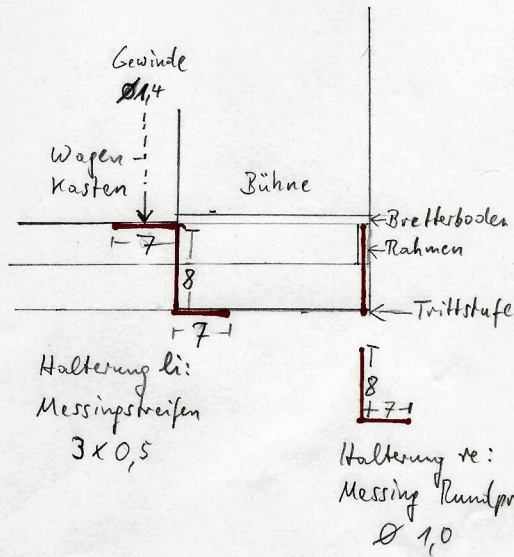 Gewinde
Ø1,4
Wagen-
Kasten
Bühne
Bretterboden
Rahmen
7
8
Trittstufe
7
Halterung li:
Messingstreifen
3 x 0,5
8
7
Halterung re:
Messing Rundpr
Ø 1,0